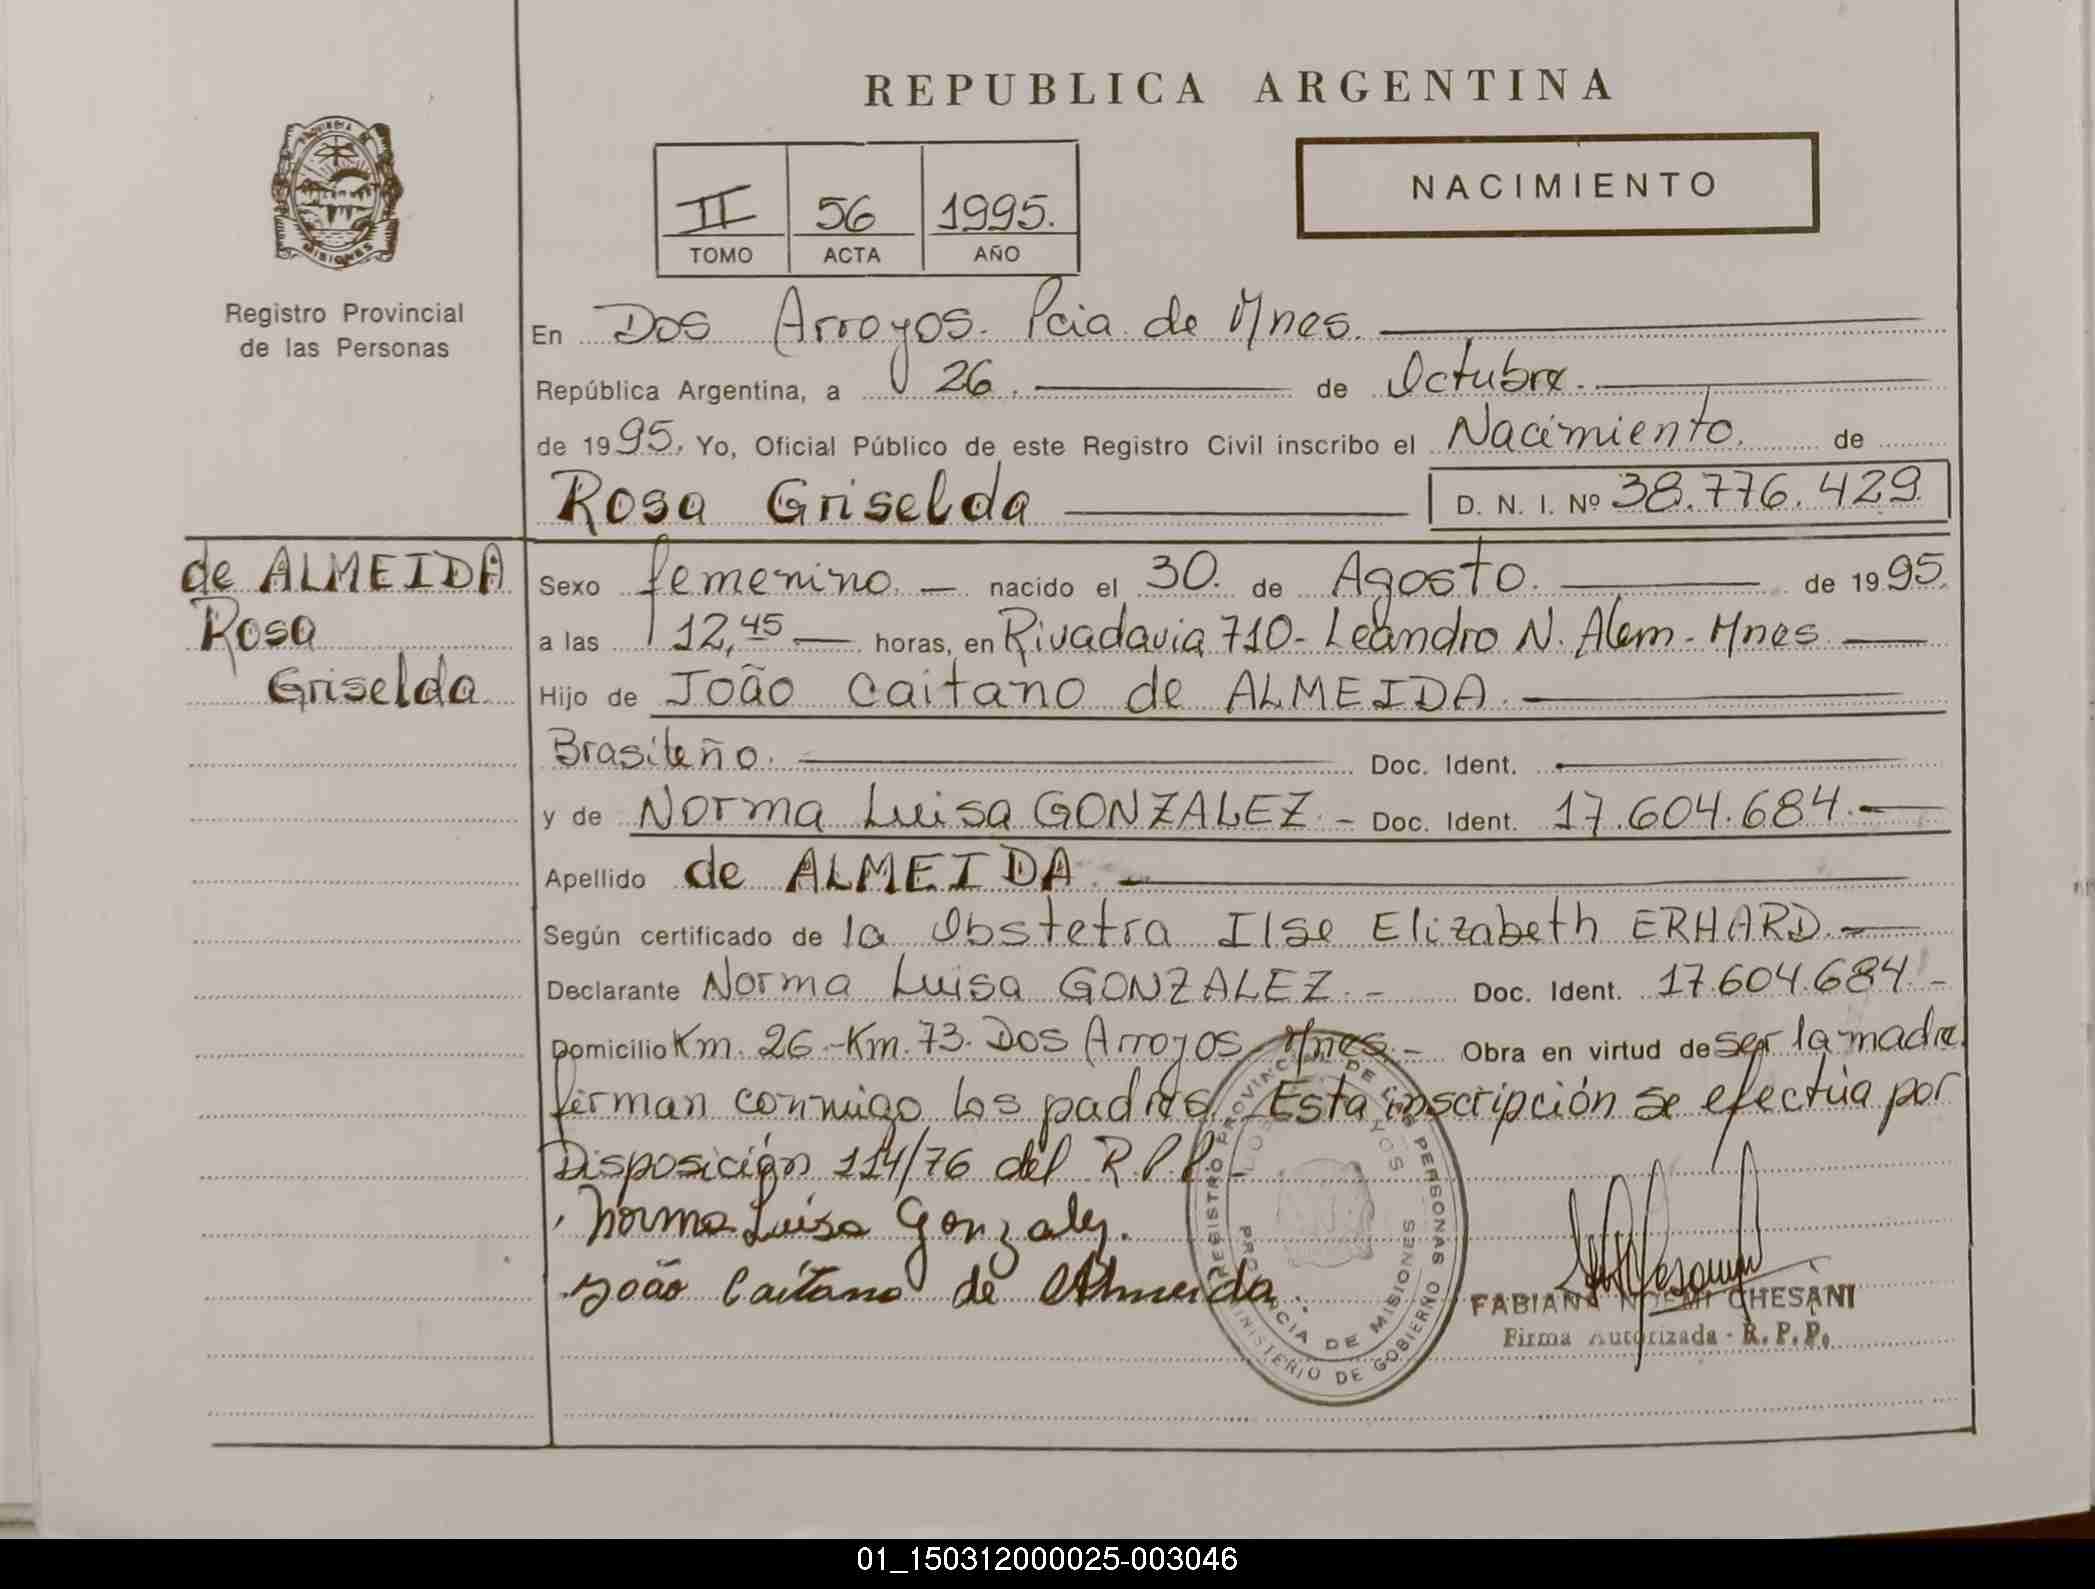 REPUBLICA ARGENTINA
NACIMIENTO
II 56 1995.
TOMO ACTA AÑO
MISIONES
Registro Provincial
de las Personas
En Dos Arroyos. Pcia de Mnes.
República Argentina, a 26. de Octubre.
de 1995. Yo, Oficial Público de este Registro Civil inscribo el Nacimiento. de
Rosa Griselda D. N. I. Nº 38.776.429.
de ALMEIDA
Rosa
Griselda
Sexo femenino. — nacido el 30. de Agosto. de 1995.
a las 12,45 — horas, en Rivadavia 710 - Leandro N. Alem - Mnes —
Hijo de João Caitano de ALMEIDA. —
Brasileño. — Doc. Ident. —
y de Norma Luisa GONZALEZ. - Doc. Ident. 17.604.684. —
Apellido de ALMEIDA —
Según certificado de la Obstetra Ilse Elizabeth ERHARD. —
Declarante Norma Luisa GONZALEZ. - Doc. Ident. 17.604.684. -
Domicilio Km. 26 - Km. 73. Dos Arroyos Mnes. - Obra en virtud de ser la madre.
firman conmigo los padres. Esta inscripción se efectúa por
Disposición 114/76 del R.P.P. -
Norma Luisa Gonzalez.
João Caitano de Almeida.
REGISTRO PROVINCIAL DE LAS PERSONAS
MINISTERIO DE GOBIERNO
DOS ARROYOS
PROVINCIA DE MISIONES
FABIANA NOEMI CHESANI
Firma Autorizada - R. P. P.
01_150312000025-003046